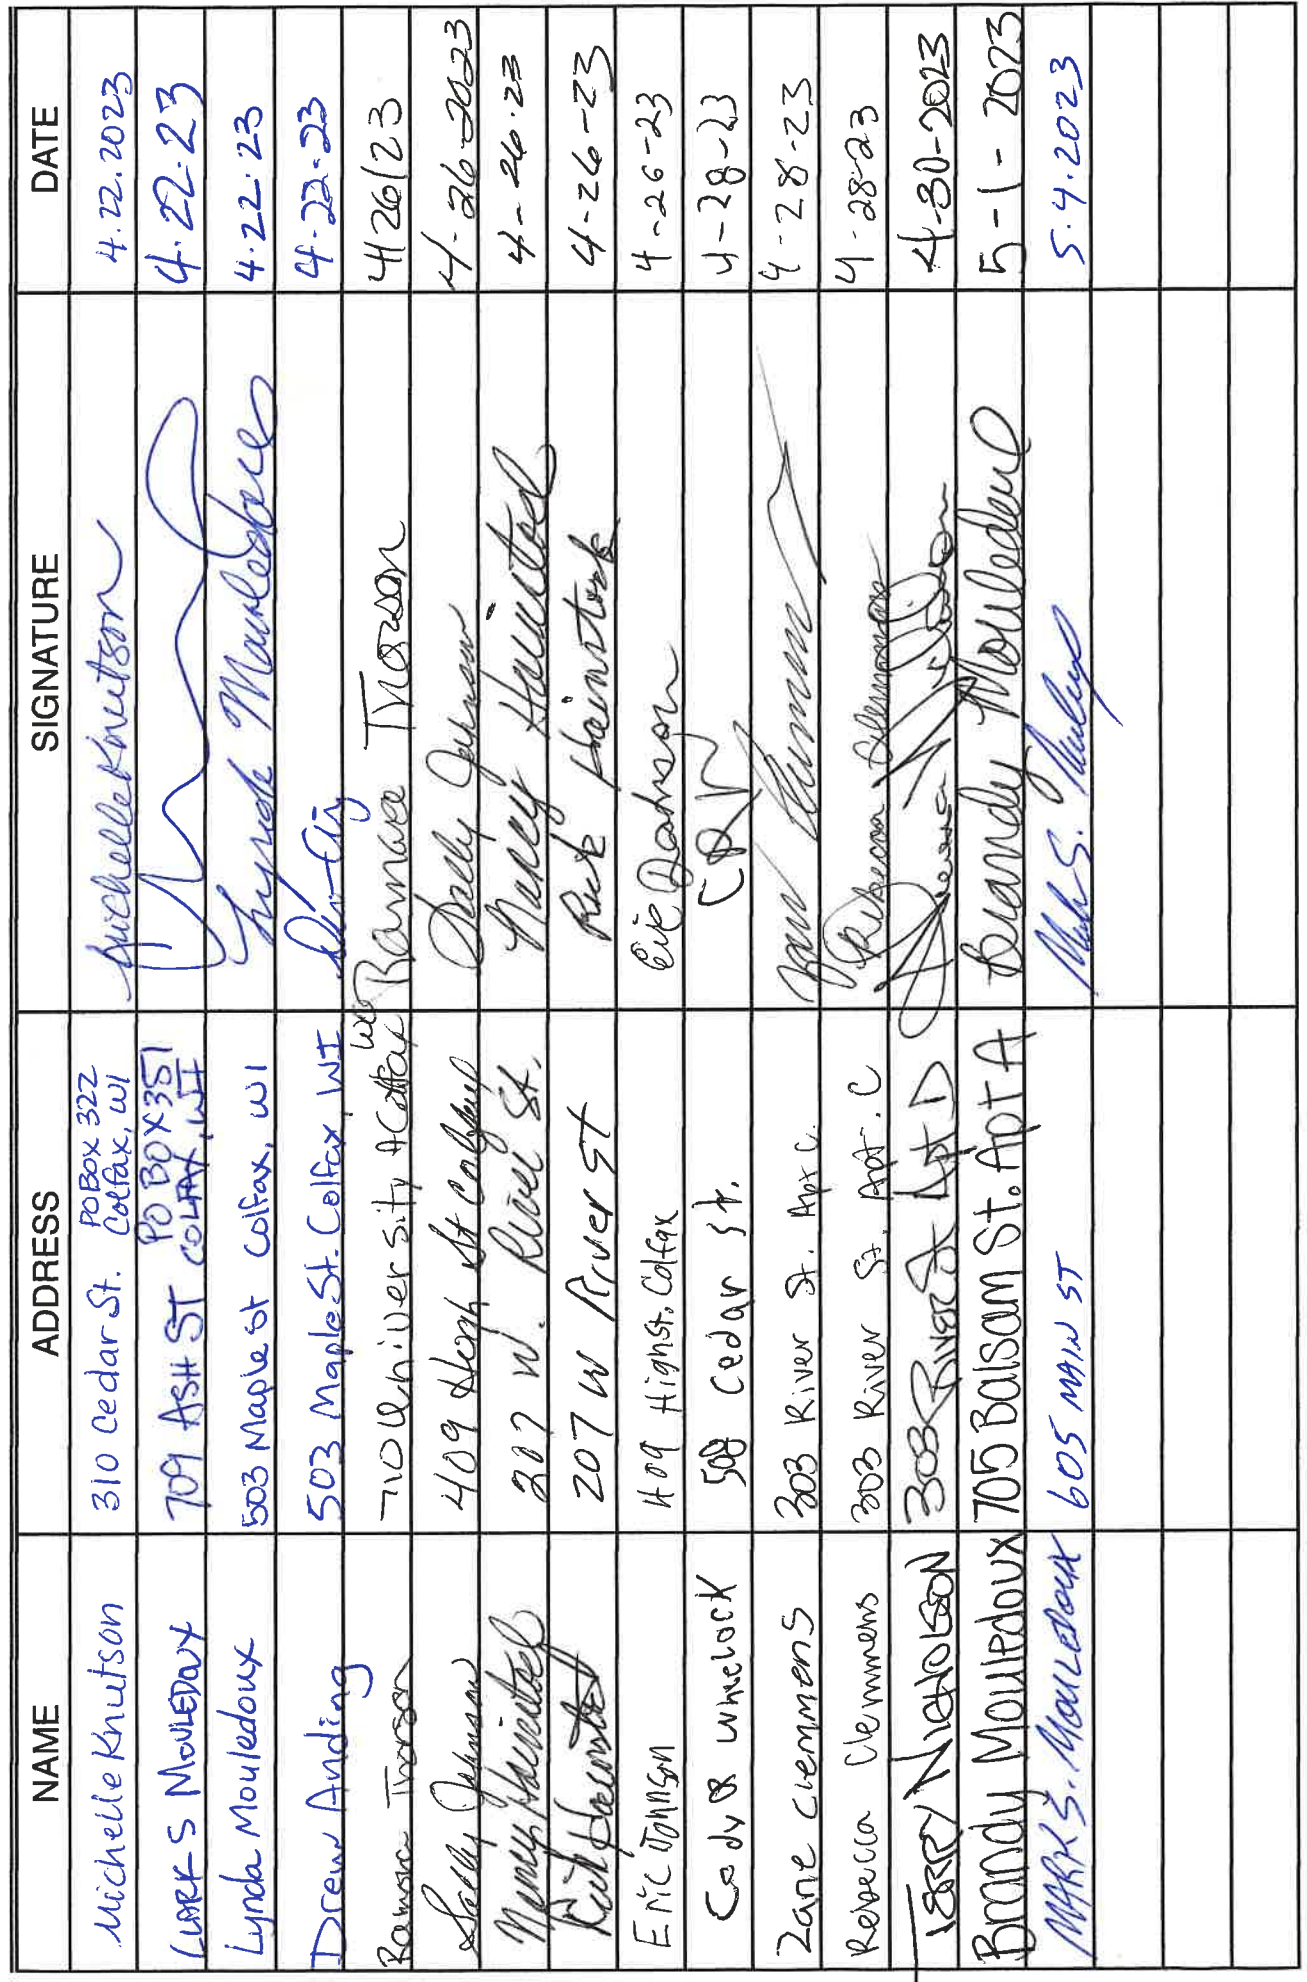 NAME ADDRESS SIGNATURE DATE
Michelle Knutson 310 Cedar St. PO Box 322 Colfax, WI Michelle Knutson 4.22.2023
CLARK S MOULEDOUX 709 ASH ST PO BOX 351 COLFAX, WI 4.22.23
Lynda Mouledoux 503 Maple St Colfax, WI Lynda Mouledoux 4.22.23
Drew Anding 503 Maple St. Colfax, WI 4-22-23
Ramona Thorson 710 University Colfax WI Thorson 4/26/23
Sally Johnson 409 High St Colfax Sally Johnson 4-26-2023
Nancy Hainstock 207 W. River St. Nancy Hainstock 4-26-23
Rick Hainstock 207 W River ST Rick Hainstock 4-26-23
Eric Johnson 409 High St. Colfax Eric Johnson 4-26-23
Cody R Wheelock 508 Cedar St. CRW 4-28-23
Zane Clemmens 303 River St. Apt C. 4-28-23
Rebecca Clemmens 303 River St. Apt. C Rebecca Clemmens 4-28-23
TERRY NICHOLSON 303 RIVER St Apt D 4-30-2023
Brandy Mouledoux 705 Balsam St. Apt A Brandy Mouledoux 5-1-2023
MARK S. MOULEDOUX 605 MAIN ST Mark S. 5.4.2023